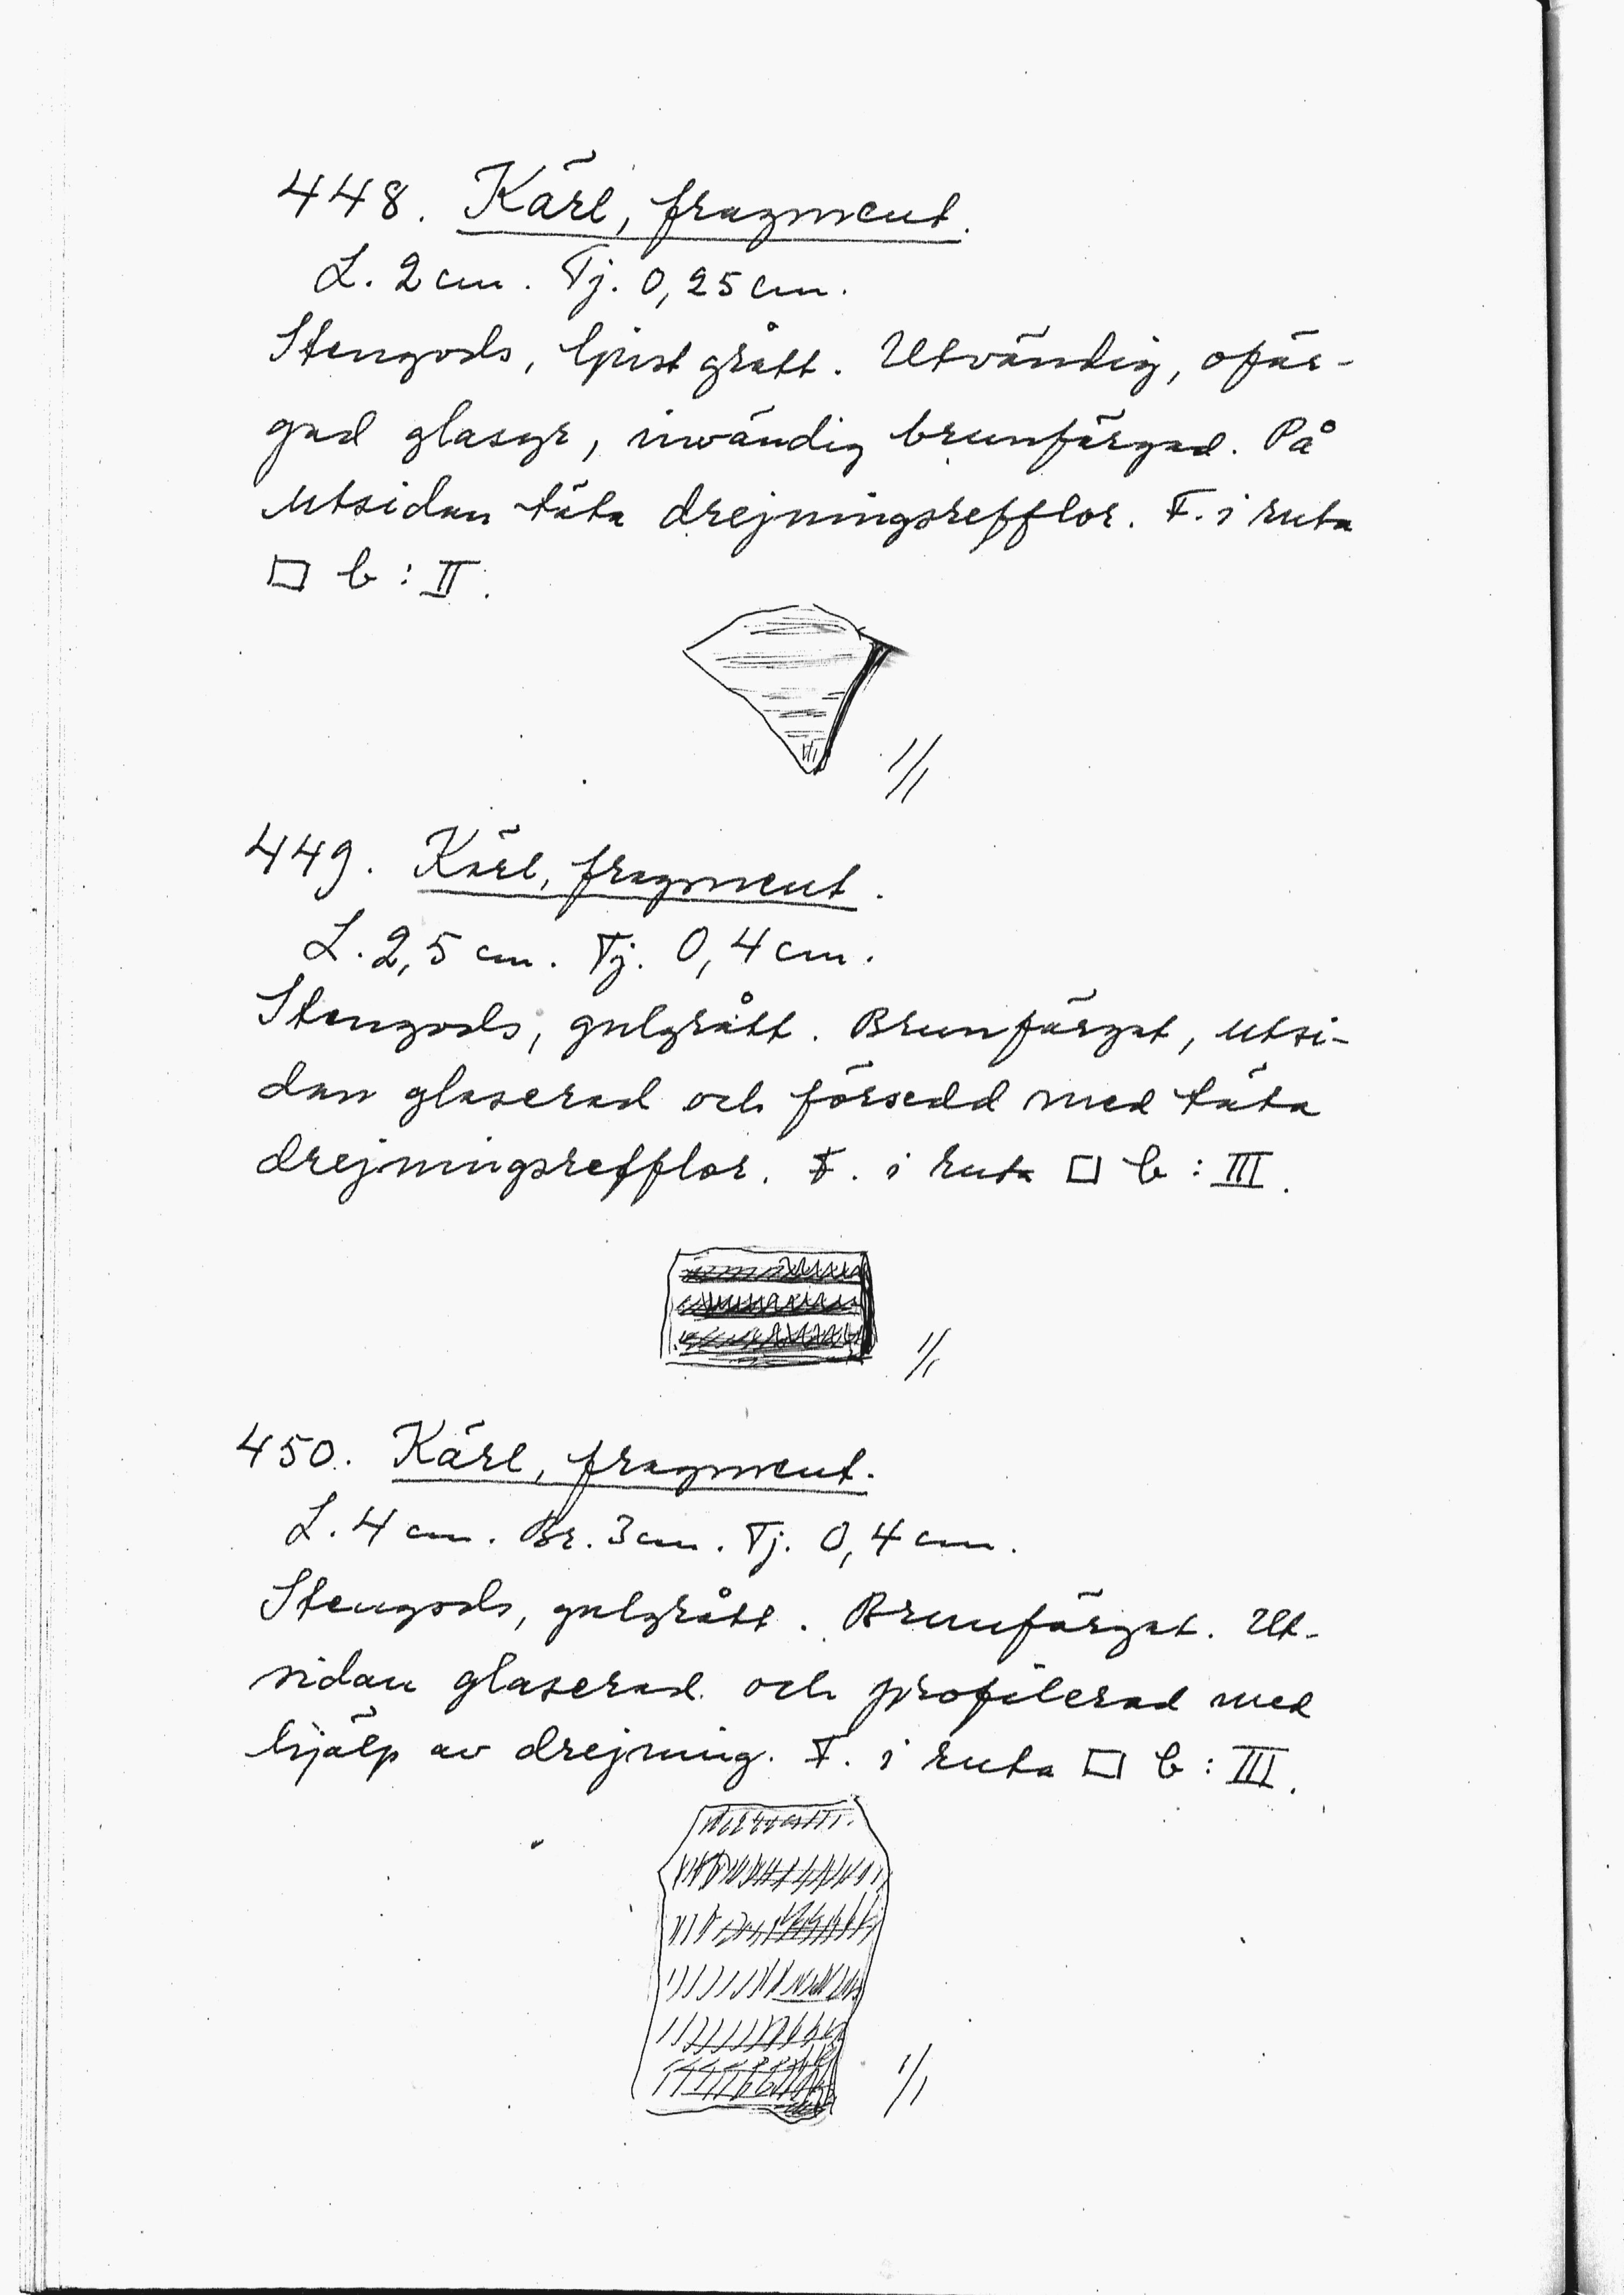 448. Kärl, fragment.
L. 2 cm. Tj. 0,25 cm.
Stengods, ljust grått. Utvändig, ofär-
gad glasyr, invändig brunfärgad. På
utsidan täta drejningsrefflor. F. i ruta
□ b : II.
1/1
449. Kärl, fragment.
L. 2,5 cm. Tj. 0,4 cm.
Stengods, gulgrått. Brunfärgat, utsi-
dan glaserad och försedd med täta
drejningsrefflor. F. i ruta □ b : III.
1/1
450. Kärl, fragment.
L. 4 cm. Br. 3 cm. Tj. 0,4 cm.
Stengods, gulgrått. Brunfärgat. Ut-
sidan glaserad och profilerad med
hjälp av drejning. F. i ruta □ b : III.
1/1